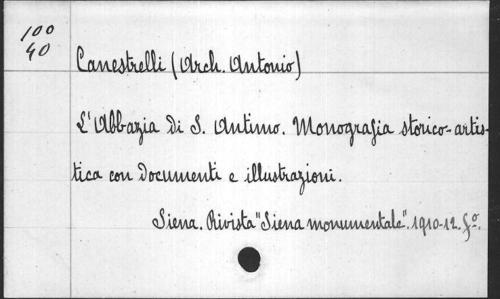 100
40
Canestrelli (Arch. Antonio)
L'Abbazia di S. Antimo. Monografia storico-artis-
tica con documenti e illustrazioni.
Siena. Rivista "Siena monumentale". 1910-12. fº.